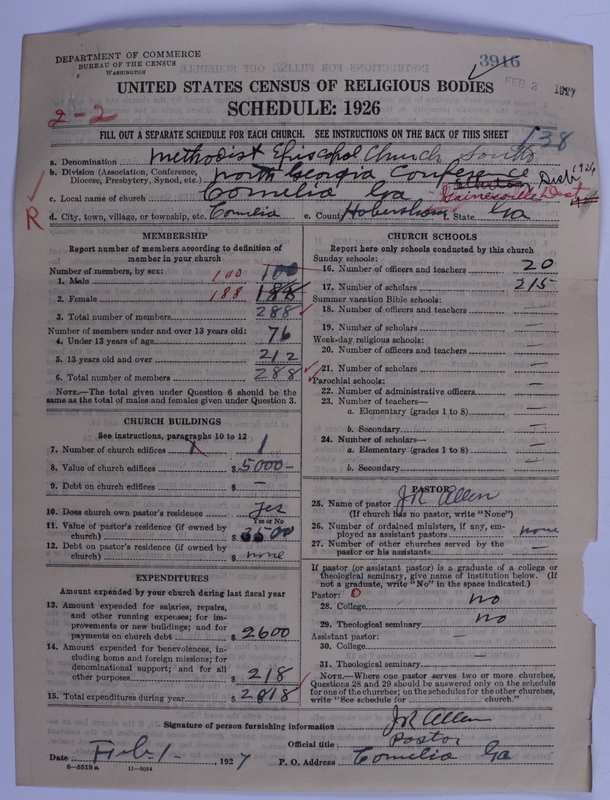 DEPARTMENT OF COMMERCE
BUREAU OF THE CENSUS
WASHINGTON
3916
FEB 2 1927
UNITED STATES CENSUS OF RELIGIOUS BODIES
SCHEDULE: 1926
2-2
138
FILL OUT A SEPARATE SCHEDULE FOR EACH CHURCH. SEE INSTRUCTIONS ON THE BACK OF THIS SHEET
a. Denomination Methodist Episcopal Church South
b. Division (Association, Conference, Diocese, Presbytery, Synod, etc.) North Georgia Conference
Dist 1926
Gainesville Dist
c. Local name of church Cornelia Ga
R
d. City, town, village, or township, etc. Cornelia e. County Habersham State Ga
MEMBERSHIP
Report number of members according to definition of member in your church
Number of members by sex:
1. Male 100 100
2. Female 188 188
3. Total number of members 288
Number of members under and over 13 years old:
4. Under 13 years of age 76
5. 13 years old and over 212
6. Total number of members 288
NOTE.—The total given under Question 6 should be the same as the total of males and females given under Question 3.
CHURCH BUILDINGS
See instructions, paragraphs 10 to 12
7. Number of church edifices 1
8. Value of church edifices $5000-
9. Debt on church edifices $ —
10. Does church own pastor's residence? Yes
Yes or No
11. Value of pastor's residence (if owned by church) $3500
12. Debt on pastor's residence (if owned by church) $ none
EXPENDITURES
Amount expended by your church during last fiscal year
13. Amount expended for salaries, repairs, and other running expenses; for improvements or new buildings; and for payments on church debt $ 2600
14. Amount expended for benevolences, including home and foreign missions; for denominational support; and for all other purposes $ 218
15. Total expenditures during year $ 2818
CHURCH SCHOOLS
Report here only schools conducted by this church
Sunday schools:
16. Number of officers and teachers 20
17. Number of scholars 215
Summer vacation Bible schools:
18. Number of officers and teachers —
19. Number of scholars —
Week-day religious schools:
20. Number of officers and teachers —
21. Number of scholars —
Parochial schools:
22. Number of administrative officers —
23. Number of teachers—
a. Elementary (grades 1 to 8) —
b. Secondary —
24. Number of scholars—
a. Elementary (grades 1 to 8) —
b. Secondary —
PASTOR
25. Name of pastor J R Allen
(If church has no pastor, write "None")
26. Number of ordained ministers, if any, employed as assistant pastors none
27. Number of other churches served by the pastor or his assistants —
If pastor (or assistant pastor) is a graduate of a college or theological seminary, give name of institution below. (If not a graduate, write "No" in the space indicated.)
Pastor: 0
28. College no
29. Theological seminary no
Assistant pastor:
30. College —
31. Theological seminary
NOTE.—Where one pastor serves two or more churches, Questions 28 and 29 should be answered only on the schedule for one of the churches; on the schedules for the other churches, write "See schedule for church."
Signature of person furnishing information J R Allen
Official title Pastor
Date Feb 1 -, 1927 P. O. Address Cornelia Ga
8—5518a 11—9024